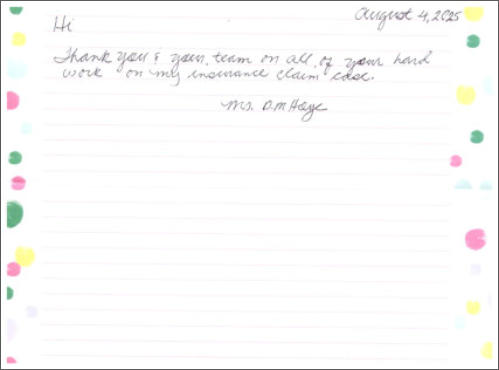 August 4, 2025
Hi
Thank you & your team on all of your hard
work on my insurance claim case.
Ms. D.M Haye